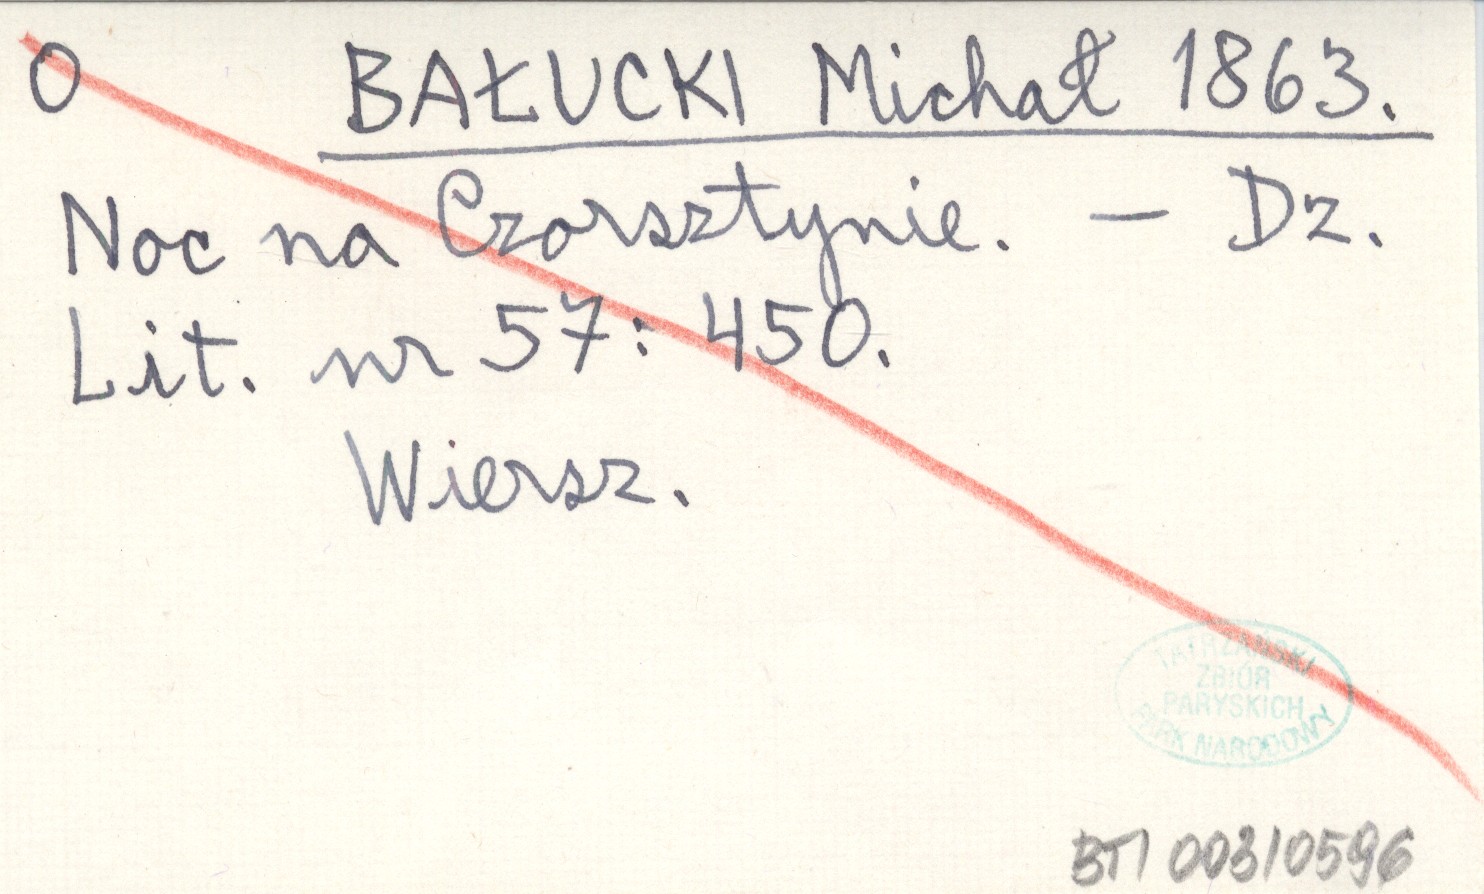 O BAŁUCKI Michał 1863.
Noc na Czorsztynie. — Dz.
Lit. nr 57: 450.
Wiersz.
TATRZAŃSKI
ZBIÓR
PARYSKICH
PARK NARODOWY
BTI 00310596